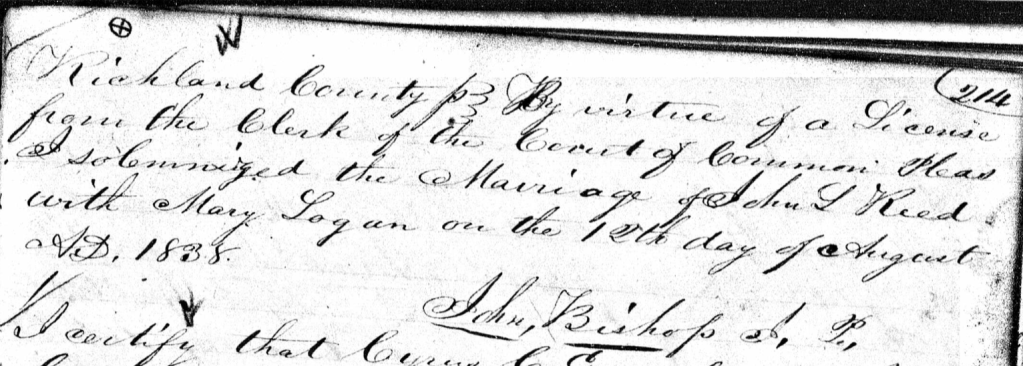 214
Richland County ss By virtue of a License
from the Clerk of the Court of Common Pleas
I solemnized the Marriage of John L Reed
with Mary Logan on the 12th day of August
A.D. 1838.
John, Bishop J. P.,
I certify that Cyrus C